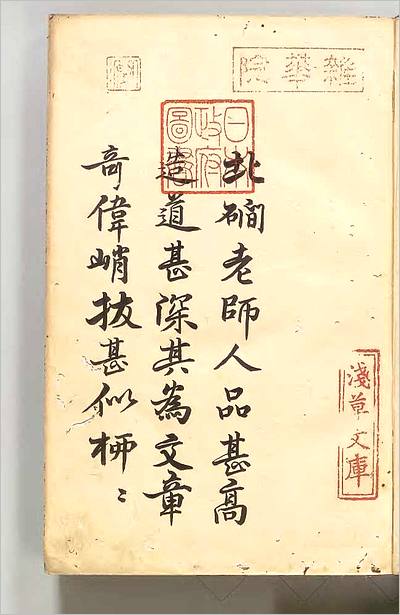 雜華院
日本
政府
圖書
淺草文庫
北磵老師人品甚高
造道甚深其為文章
竒偉峭拔甚似栁〻